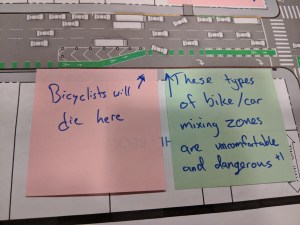 Bicyclists will
die here
These types
of bike/car
mixing zones
are uncomfortable
and dangerous +1